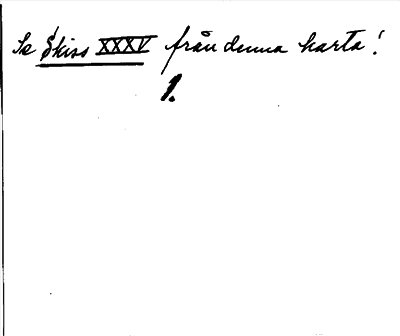 Se Skiss XXXV från denna karta!
1.